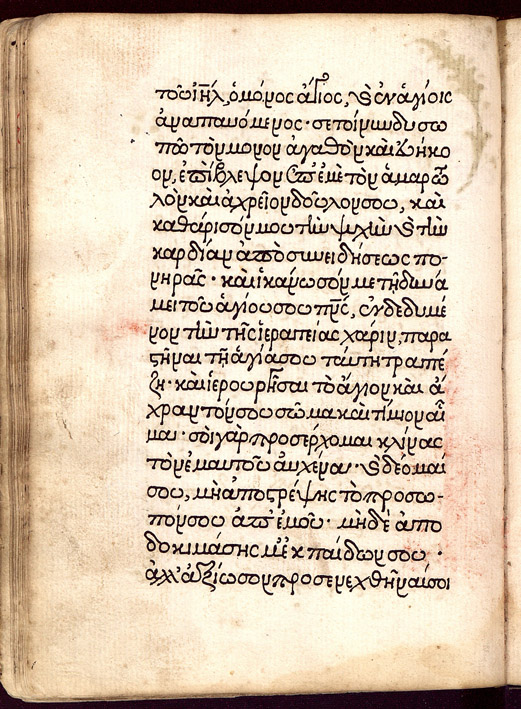 τοῦ ἰη̅λ, ὁ μόνος ἅγιος, καὶ ἐν ἁγίοις
ἀναπαυόμενος· σὲ τοίνυν δυσω
πῶ τὸν μόνον ἀγαθὸν καὶ εὐήκο
ον, ἐπίβλεψον ἐπ' ἐμὲ τὸν ἁμαρτω
λὸν καὶ ἀχρεῖον δοῦλον σου, καὶ
καθάρισόν μου τὴν ψυχὴν καὶ τὴν
καρδίαν ἀπὸ συνειδήσεως πο-
νηρᾶς· καὶ ἱκάνωσόν με τῇ δυνά
μει τοῦ ἁγίου σου πν̅ς, ἐνδεδυμέ
νον τὴν τῆς ἱερατείας χάριν, παρα
στῆναι τῇ ἁγίᾳ σου ταύτῃ τραπέ
ζῃ· καὶ ἱερουργῆσαι τὸ ἅγιον καὶ ἄ
χραντόν σου σῶμα καὶ τίμιον αἷ
μα· σοὶ γὰρ προσέρχομαι κλίνας
τὸν ἐμαυτοῦ αὐχένα· καὶ δέομαί
σου, μὴ ἀποστρέψῃς τὸ πρόσω-
πόν σου ἀπ' ἐμοῦ· μηδὲ ἀπο
δοκιμάσῃς με ἐκ παίδων σου·
ἀλλ' ἀξίωσον προσενεχθῆναί σοι